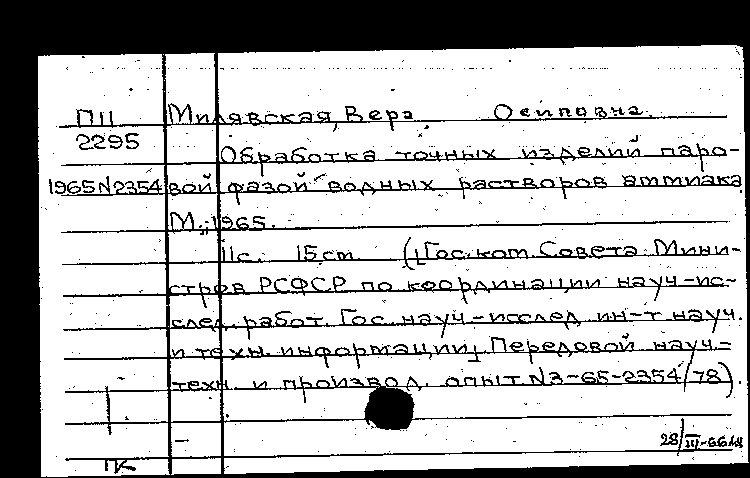 П11 Милявская, Вера Осиповна.
2295
Обработка точных изделий паро-
1965 N2354 вой фазой водных растворов аммиака
М., 1965.
11с. 15 см. ([Гос. ком. Совета Мини-
стров РСФСР по координации науч-ис-
след. работ. Гос. науч-исслед. ин-т науч.
и техн. информации]. Передовой науч.-
техн. и производ. опыт. N3-65-2354/78).
28/III-66
ПК